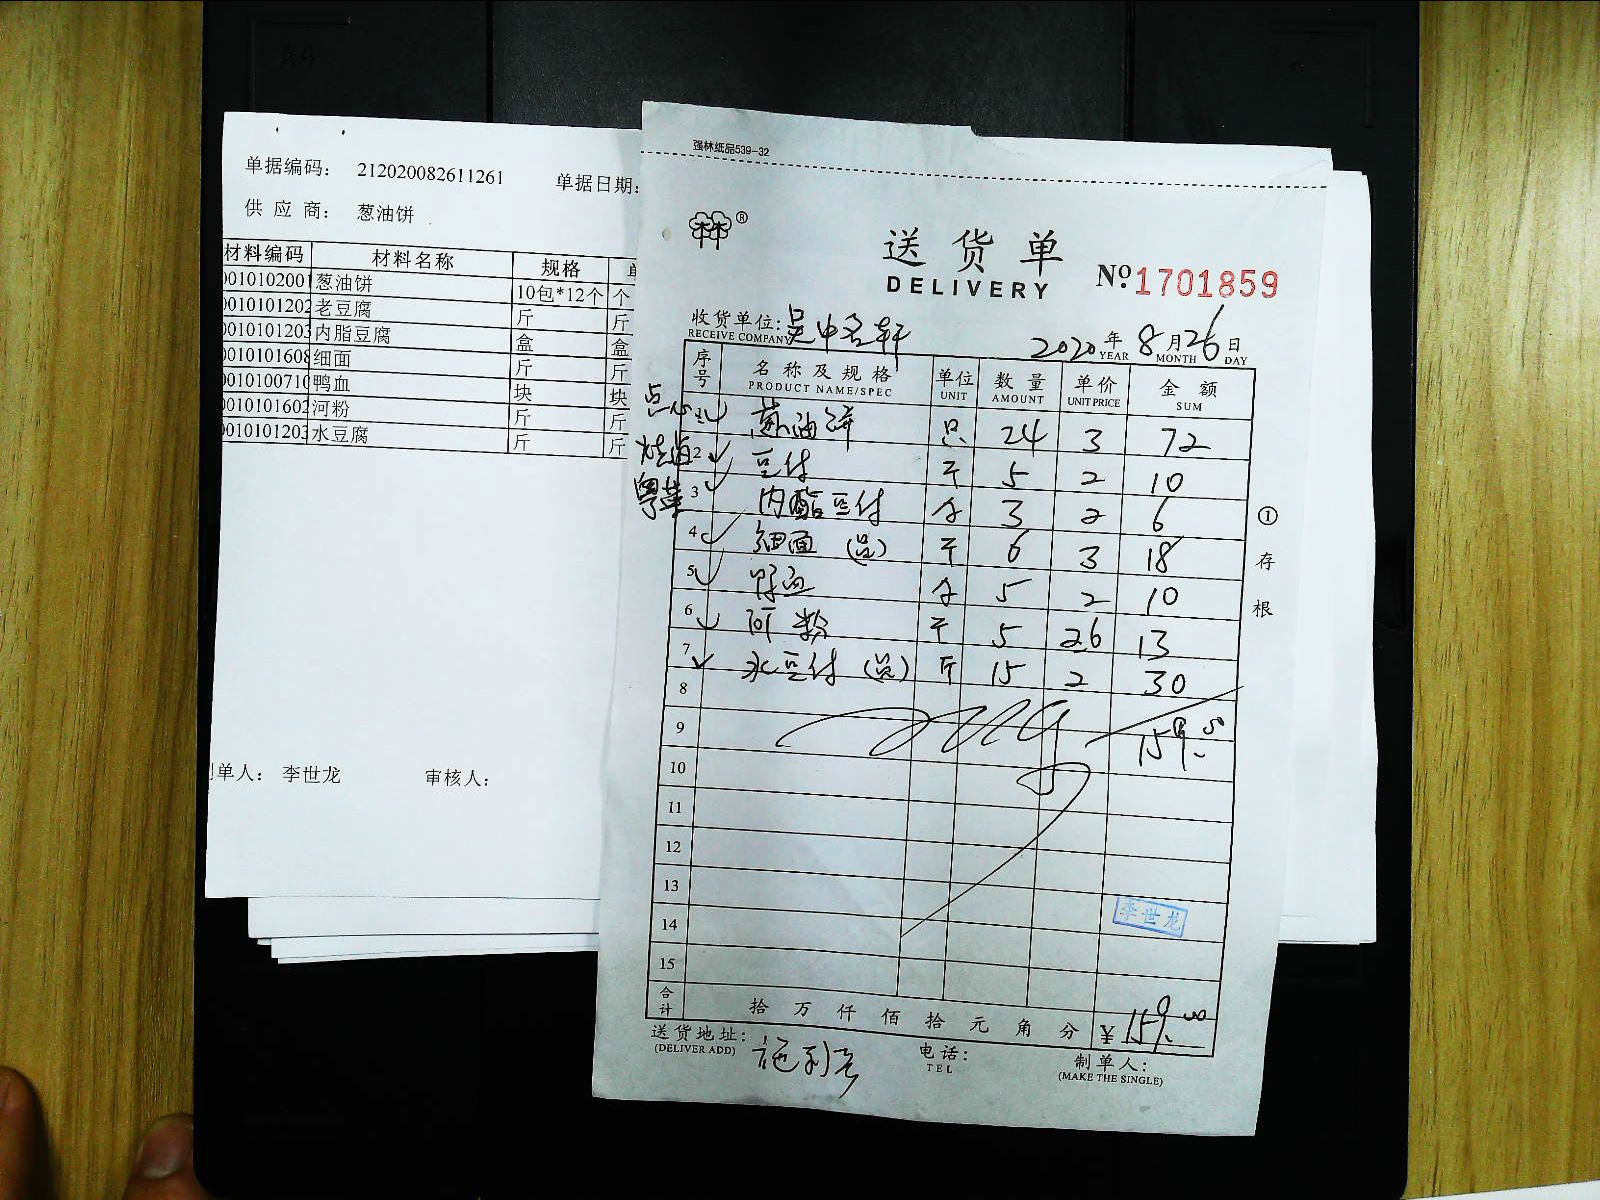 单据编码： 212020082611261 单据日期：
供 应 商： 葱油饼
材料编码 材料名称 规格 单
001010200 葱油饼 10包*12个 个
001010120 老豆腐 斤 斤
001010120 内脂豆腐 盒 盒
001010160 细面 斤 斤
001010071 鸭血 块 块
001010160 河粉 斤 斤
001010120 水豆腐 斤 斤
单人： 李世龙 审核人：
强林纸品539-32
林®
送 货 单
DELIVERY
Nº:1701859
收货单位:吴中名轩
RECEIVE COMPANY
2020年8月26日
YEAR MONTH DAY
序号 名称及规格 单位 数量 单价 金额
PRODUCT NAME/SPEC UNIT AMOUNT UNIT PRICE SUM
点心 1 葱油饼 只 24 3 72
烧卤 2 豆付 斤 5 2 10
粤菜 3 内酯豆付 合 3 2 6
4 细面 斤 6 3 18
5 鸭血 合 5 2 10
6 河粉 斤 5 2.6 13
7 水豆付 斤 15 2 30
8
9 159.
10
11
12
13
李世龙
14
15
合计 拾 万 仟 佰 拾 元 角 分 ¥159.00
送货地址：
(DELIVER ADD)
电话：
TEL
制单人：
(MAKE THE SINGLE)
① 存 根